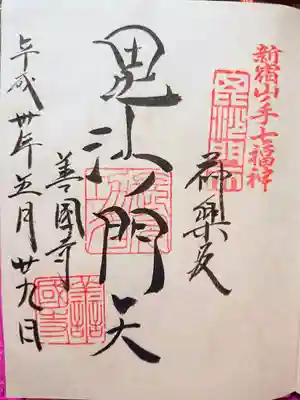 新宿山ノ手七福神
神楽坂
毘沙門天
善國寺
平成卅年五月廿九日
善國寺